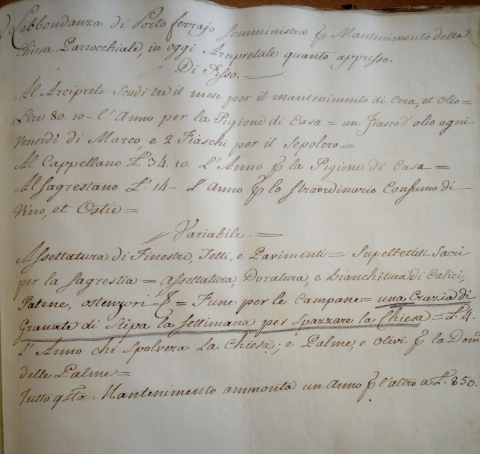 L'abbondanza di Porto ferrajo somministra p Mantenimento della
Chiesa Parrocchiale, in oggi Arcipretale quanto appresso.
Di fisso.=
Al Arciprete Scudi tre il mese per il mantenimento di Cera, et olio=
Lire 80. 10- l'Anno per la Pigione di Casa = un fiasco d'olio ogni
Venerdì di Marzo, e 2 Fiaschi per il Sepolcro=
Al Cappellano L. 34. 10. L'Anno p la Pigione di Casa=
Al Sagrestano L. 14- l'Anno p lo straordinario Consumo di
Vino, et Ostie=
Variabile.=
Assettatura di Finestre, Tetti, e Pavimenti= Supellettili Sacri
per la Sagrestia= assettatura, Doratura, e bianchitura di Calici,
Patene, ostensori p = Fune per le Campane= una Crazia di
Granate di Stipa la Settimana per Spazzare la Chiesa= L. 4.
l'Anno chi Spolvera la Chiesa; e Palme, e olivi p la Dom
delle Palme=
Tutto qsto Mantenimento ammonta un anno p l'altro a L. 850.